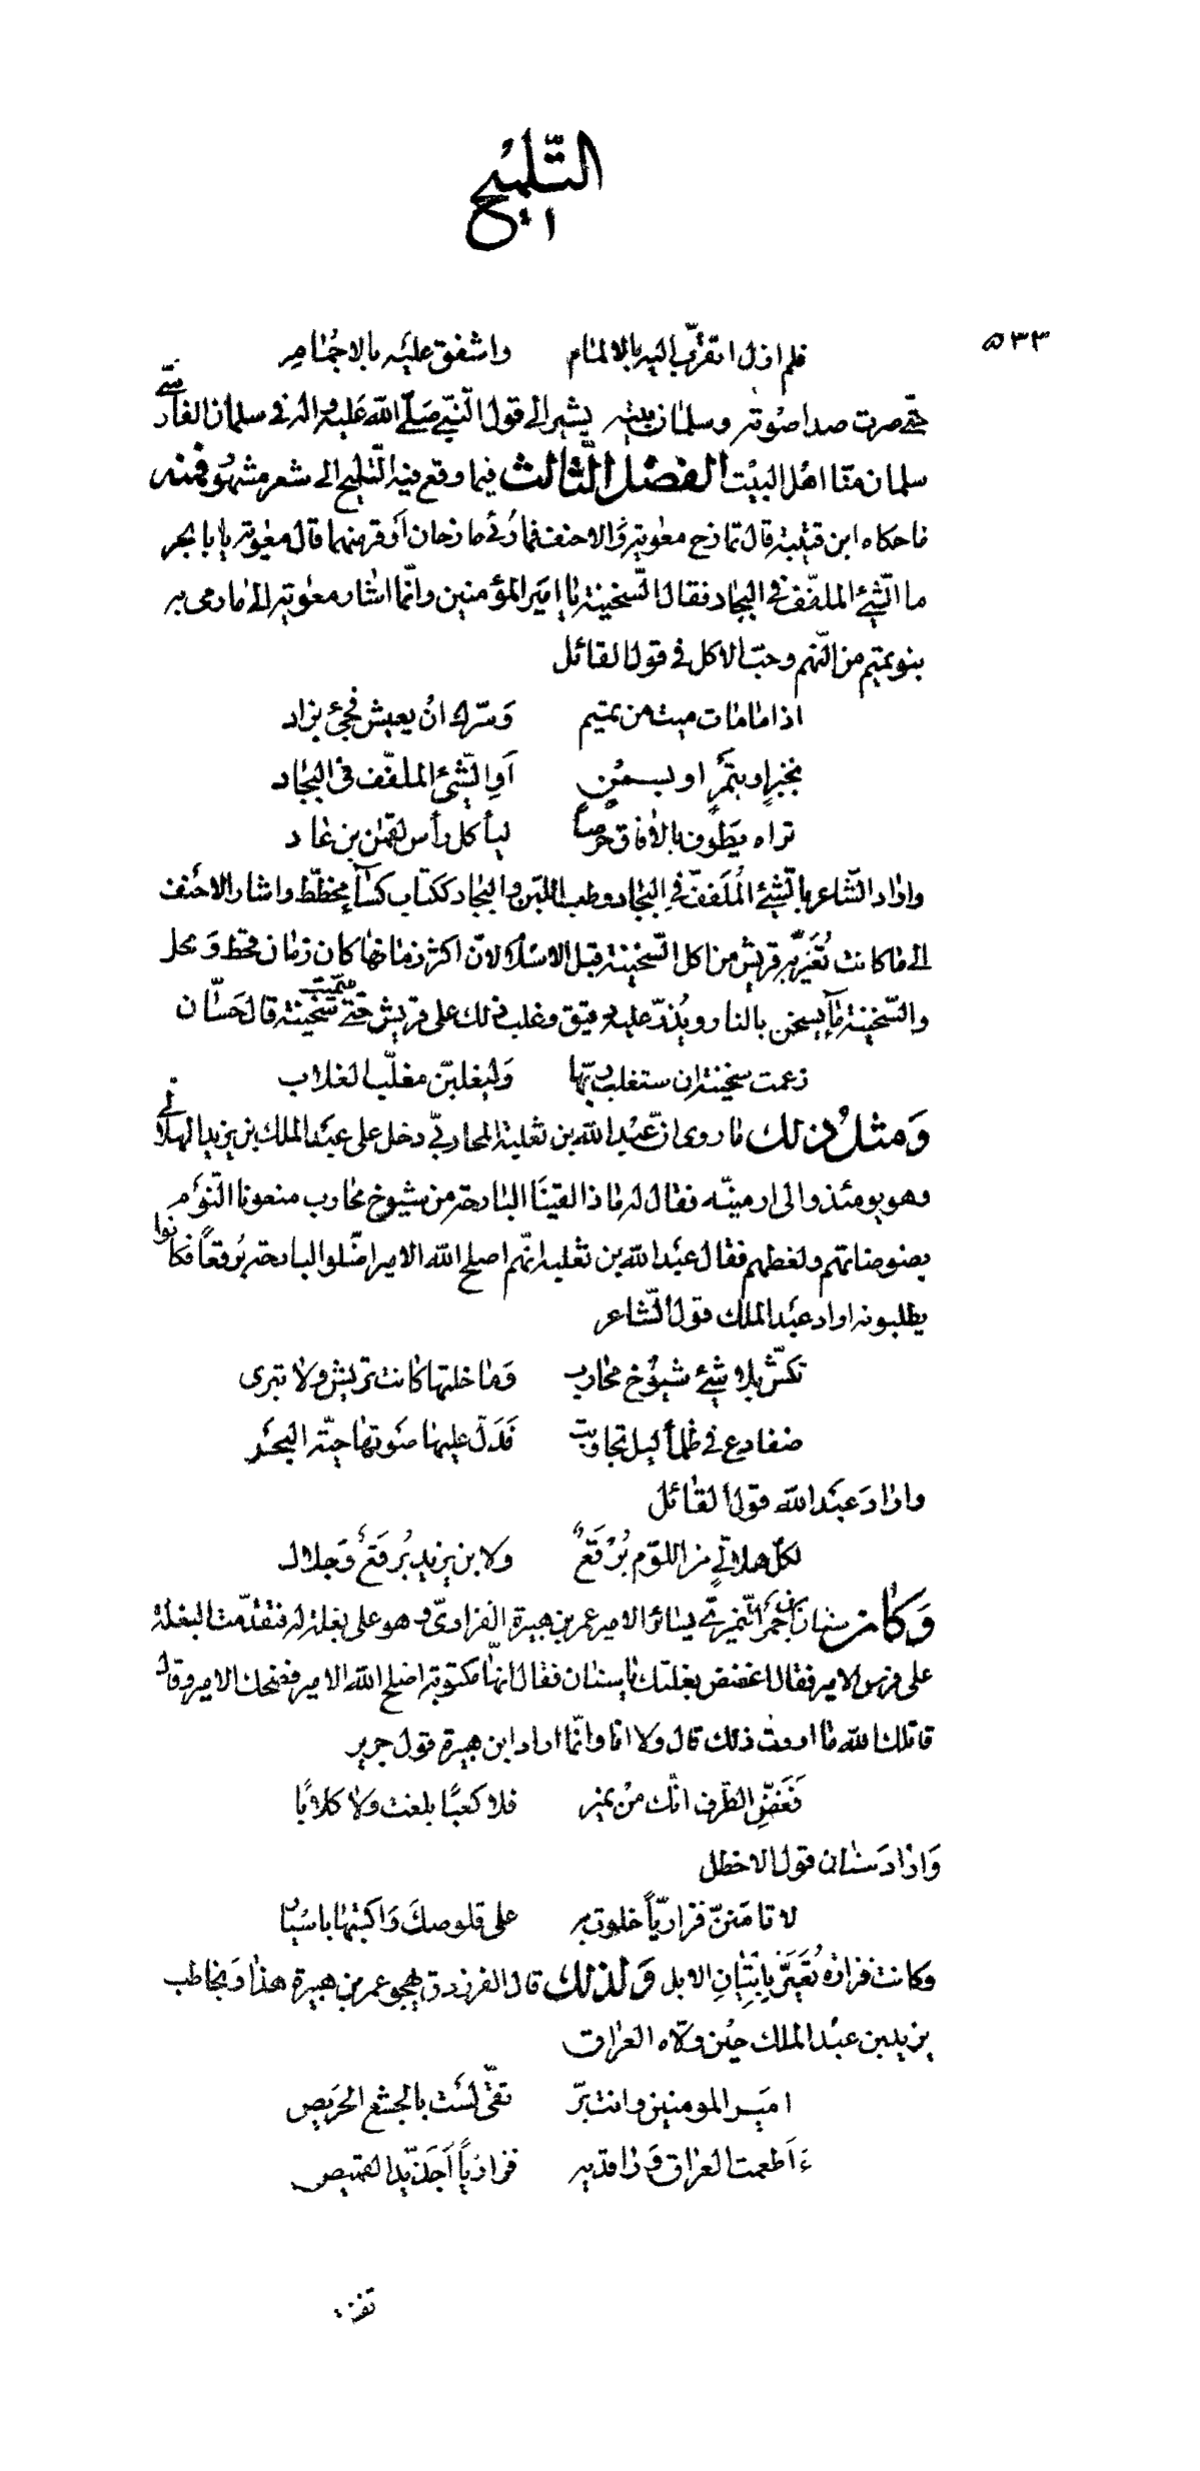 التّلميح
٥٣٣
فلم ازل اتقرّب اليه بالالمام واشفق عليه بالاجمام
حتّى صرت صدا صوته وسلمان بيته يشير الى قول النّبىّ صلّى اللّه عليه واله فى سلمان الفارسى
سلمان منّا اهل البيت الفصل الثّالث فيما وقع فيه التّلميح الى شعر مشهور فمنه
ما حكاه ابن قتيبة قال تمازح معوية والاحنف فما رُئى مازحان اوقر منهما قال معوية يا با بحر
ما الشّىء الملفّف فى البجاد فقال السّخينة يا امير المؤمنين وانّما اشار معوية الى ما رمى به
بنو تميم من النّهم وحبّ الاكل فى قول القائل
اذا ما مات ميت من تميم وسرّك ان يعيش فجئ بزاد
بخبزٍ او بتمرٍ او بسمن او الشّىء الملفّف فى البجاد
تراه يطوف بالافاق حرصاً ليأكل رأس لقمن بن عاد
واراد الشّاعر بالشّىء المُلَفّف فى البجاد وطب اللبن والبجاد ككتاب كسآء مخطّط واشار الاحنف
الى ما كانت تُعَيّر به قريش من اكل السّخينة قبل الاسلام لانّ اكثر زمانها كان زمان قحط ومحل
والسّخينة مآء يسخن بالنار ويُذرّ عليه دقيق وغلب ذلك على قريش حتّى سمّيت سخينة قال حسّان
زعمت سخينة ان ستغلب ربّها وليغلبنّ مغلّب الغلاب
ومثل ذلك ما روى انّ عبد الله بن ثعلبة المحاربىّ دخل على عبد الملك بن يزيد الهلالى
وهو يومئذ والى ارمينيّه فقال له ماذا لقينا البارحة من شيوخ محارب منعونا النّوم
بضوضائهم ولغطهم فقال عبد الله بن ثعلبه انّهم اصلح الله الامير اضّلوا البارحة بُرقعاً فكانوا
يطلبونه اراد عبد الملك قول الشّاعر
تكشّ بلا شىء شيوخ محارب وما خلتها كانت تريش ولا تبرى
ضفادع فى ظلمآء ليل تجاوبت فدلّ عليها صوتها حيّة البحر
واراد عبد الله قول القائل
لكلّ هلالىّ من اللوم بُرْقَعٌ ولابن يزيد بُرقعٌ وجلال
وكان سنان بن احمر النّميرىّ يسائر الامير عمر بن هبيرة الفزارىّ وهو على بغلة له فتقدّمت البغلة
على فرس الامير فقال اغضض بغلتك يا سنان فقال انّها مكتوبة اصلح الله الامير فضحك الامير وقال
قاتلك الله ما اردت ذلك قال ولا انا وانّما اراد ابن هبيرة قول جرير
فغضّ الطّرف انّك من نمير فلا كعبًا بلغت ولا كلابًا
واراد سنان قول الاخطل
لا تامننّ فزاريّاً خلوت به على قلوصك واكتبها باسيار
وكانت فزارة تُعَيّر بإتيانِ الابل ولذلك قال الفرزدق يهجو عمر بن هبيرة هذا ويخاطب
يزيد بن عبد الملك حين ولّاه العراق
امير المومنين وانت برّ تقىّ لست بالجشع الحريص
ءَاَطعمت العراق ورافديه فزاريّاً اَحذّ يد القميص